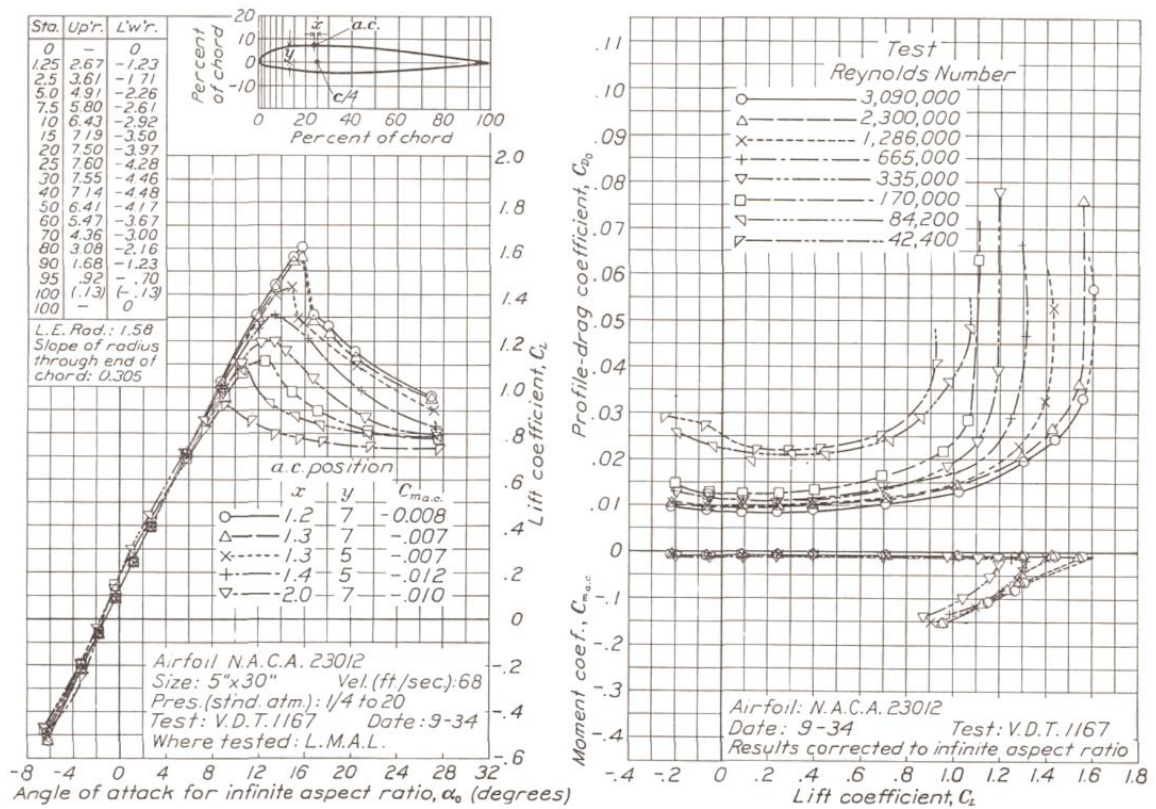 Sta. Up'r. L'w'r.
0 – 0
1.25 2.67 -1.23
2.5 3.61 -1.71
5.0 4.91 -2.26
7.5 5.80 -2.61
10 6.43 -2.92
15 7.19 -3.50
20 7.50 -3.97
25 7.60 -4.28
30 7.55 -4.46
40 7.14 -4.48
50 6.41 -4.17
60 5.47 -3.67
70 4.36 -3.00
80 3.08 -2.16
90 1.68 -1.23
95 .92 -.70
100 (.13) (-.13)
100 – 0
L.E. Rad.: 1.58
Slope of radius
through end of
chord: 0.305
Percent
of chord
20
10
0
-10
x
a.c.
y
c/4
0 20 40 60 80 100
Percent of chord
2.0
1.8
1.6
1.4
1.2
1.0
.8
.6
.4
.2
0
-.2
-.4
-.6
Lift coefficient, C_L
a.c. position
x y C_m a.c.
1.2 7 -0.008
1.3 7 -.007
1.3 5 -.007
1.4 5 -.012
2.0 7 -.010
Airfoil N.A.C.A. 23012
Size: 5"x30" Vel.(ft/sec.):68
Pres.(stnd. atm.): 1/4 to 20
Test: V.D.T. 1167 Date: 9-34
Where tested: L.M.A.L.
-8 -4 0 4 8 12 16 20 24 28 32
Angle of attack for infinite aspect ratio, α₀ (degrees)
Test
Reynolds Number
3,090,000
2,300,000
1,286,000
665,000
335,000
170,000
84,200
42,400
.11
.10
.09
.08
.07
.06
.05
.04
.03
.02
.01
0
-.1
-.2
-.3
-.4
Profile-drag coefficient, C_D0
Moment coef., C_m a.c.
Airfoil: N.A.C.A. 23012
Date: 9-34 Test: V.D.T. 1167
Results corrected to infinite aspect ratio
-.4 -.2 0 .2 .4 .6 .8 1.0 1.2 1.4 1.6 1.8
Lift coefficient, C_L